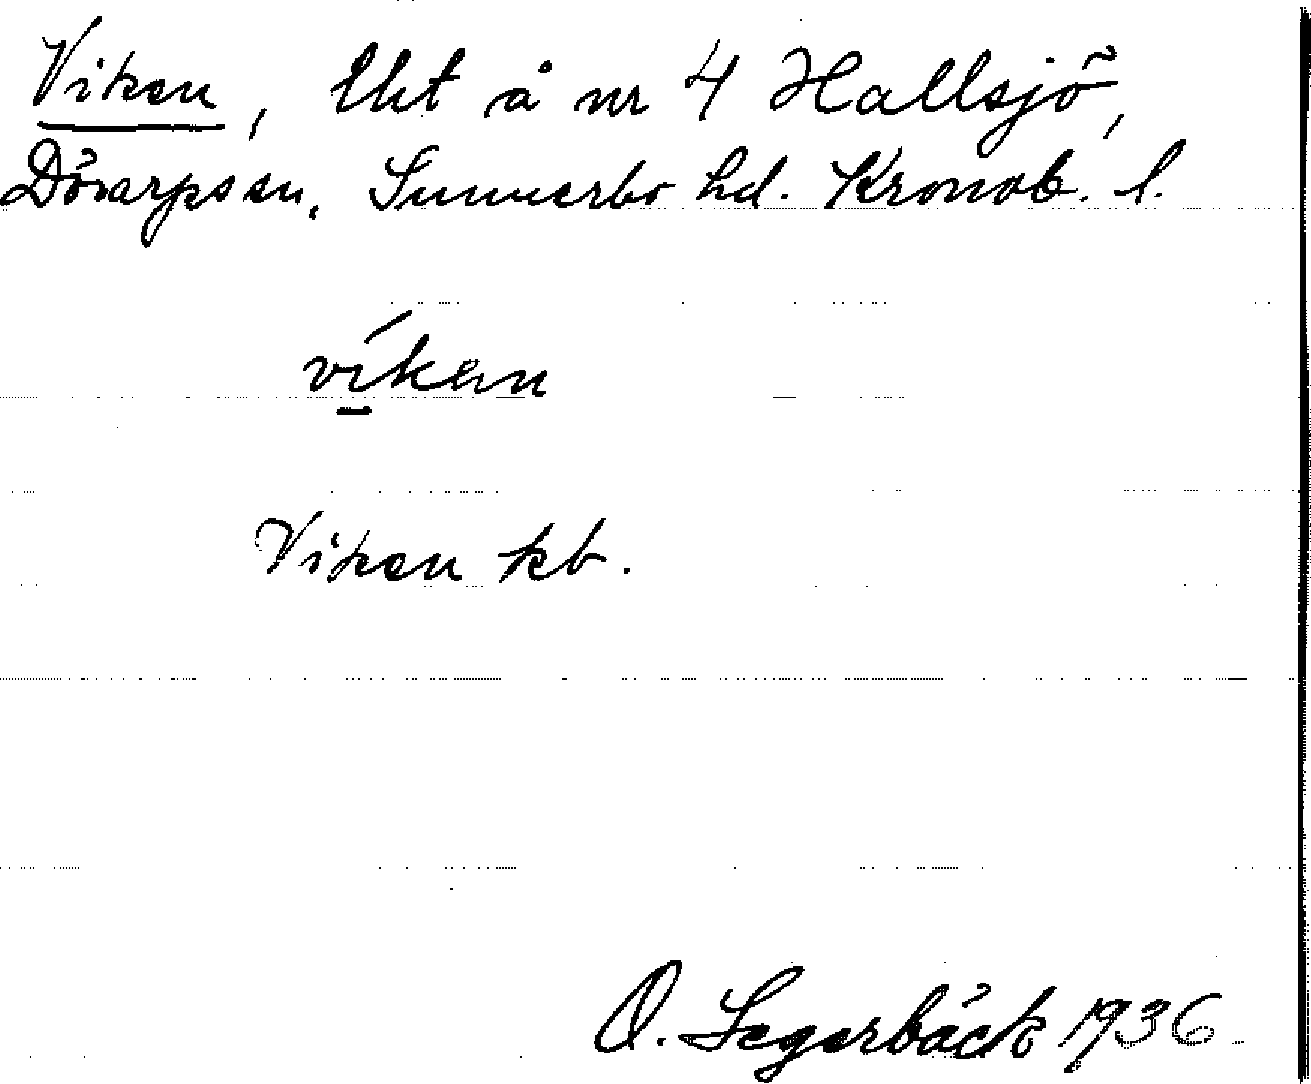 Viken, lht å nr 4 Hallsjö,
Dörarps sn, Sunnerbo hd. Kronob. l.
víkən
Viken kb.
O. Segerbäck 1936